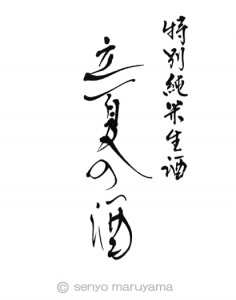 特別純米生酒
立夏の酒
© senyo maruyama